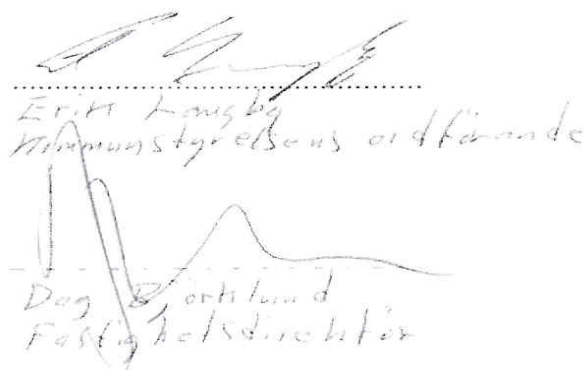 Erik Langby
Kommunstyrelsens ordförande
Dag Björklund
Fastighetsdirektör